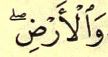 وَٱلْأَرْضِ ۖ